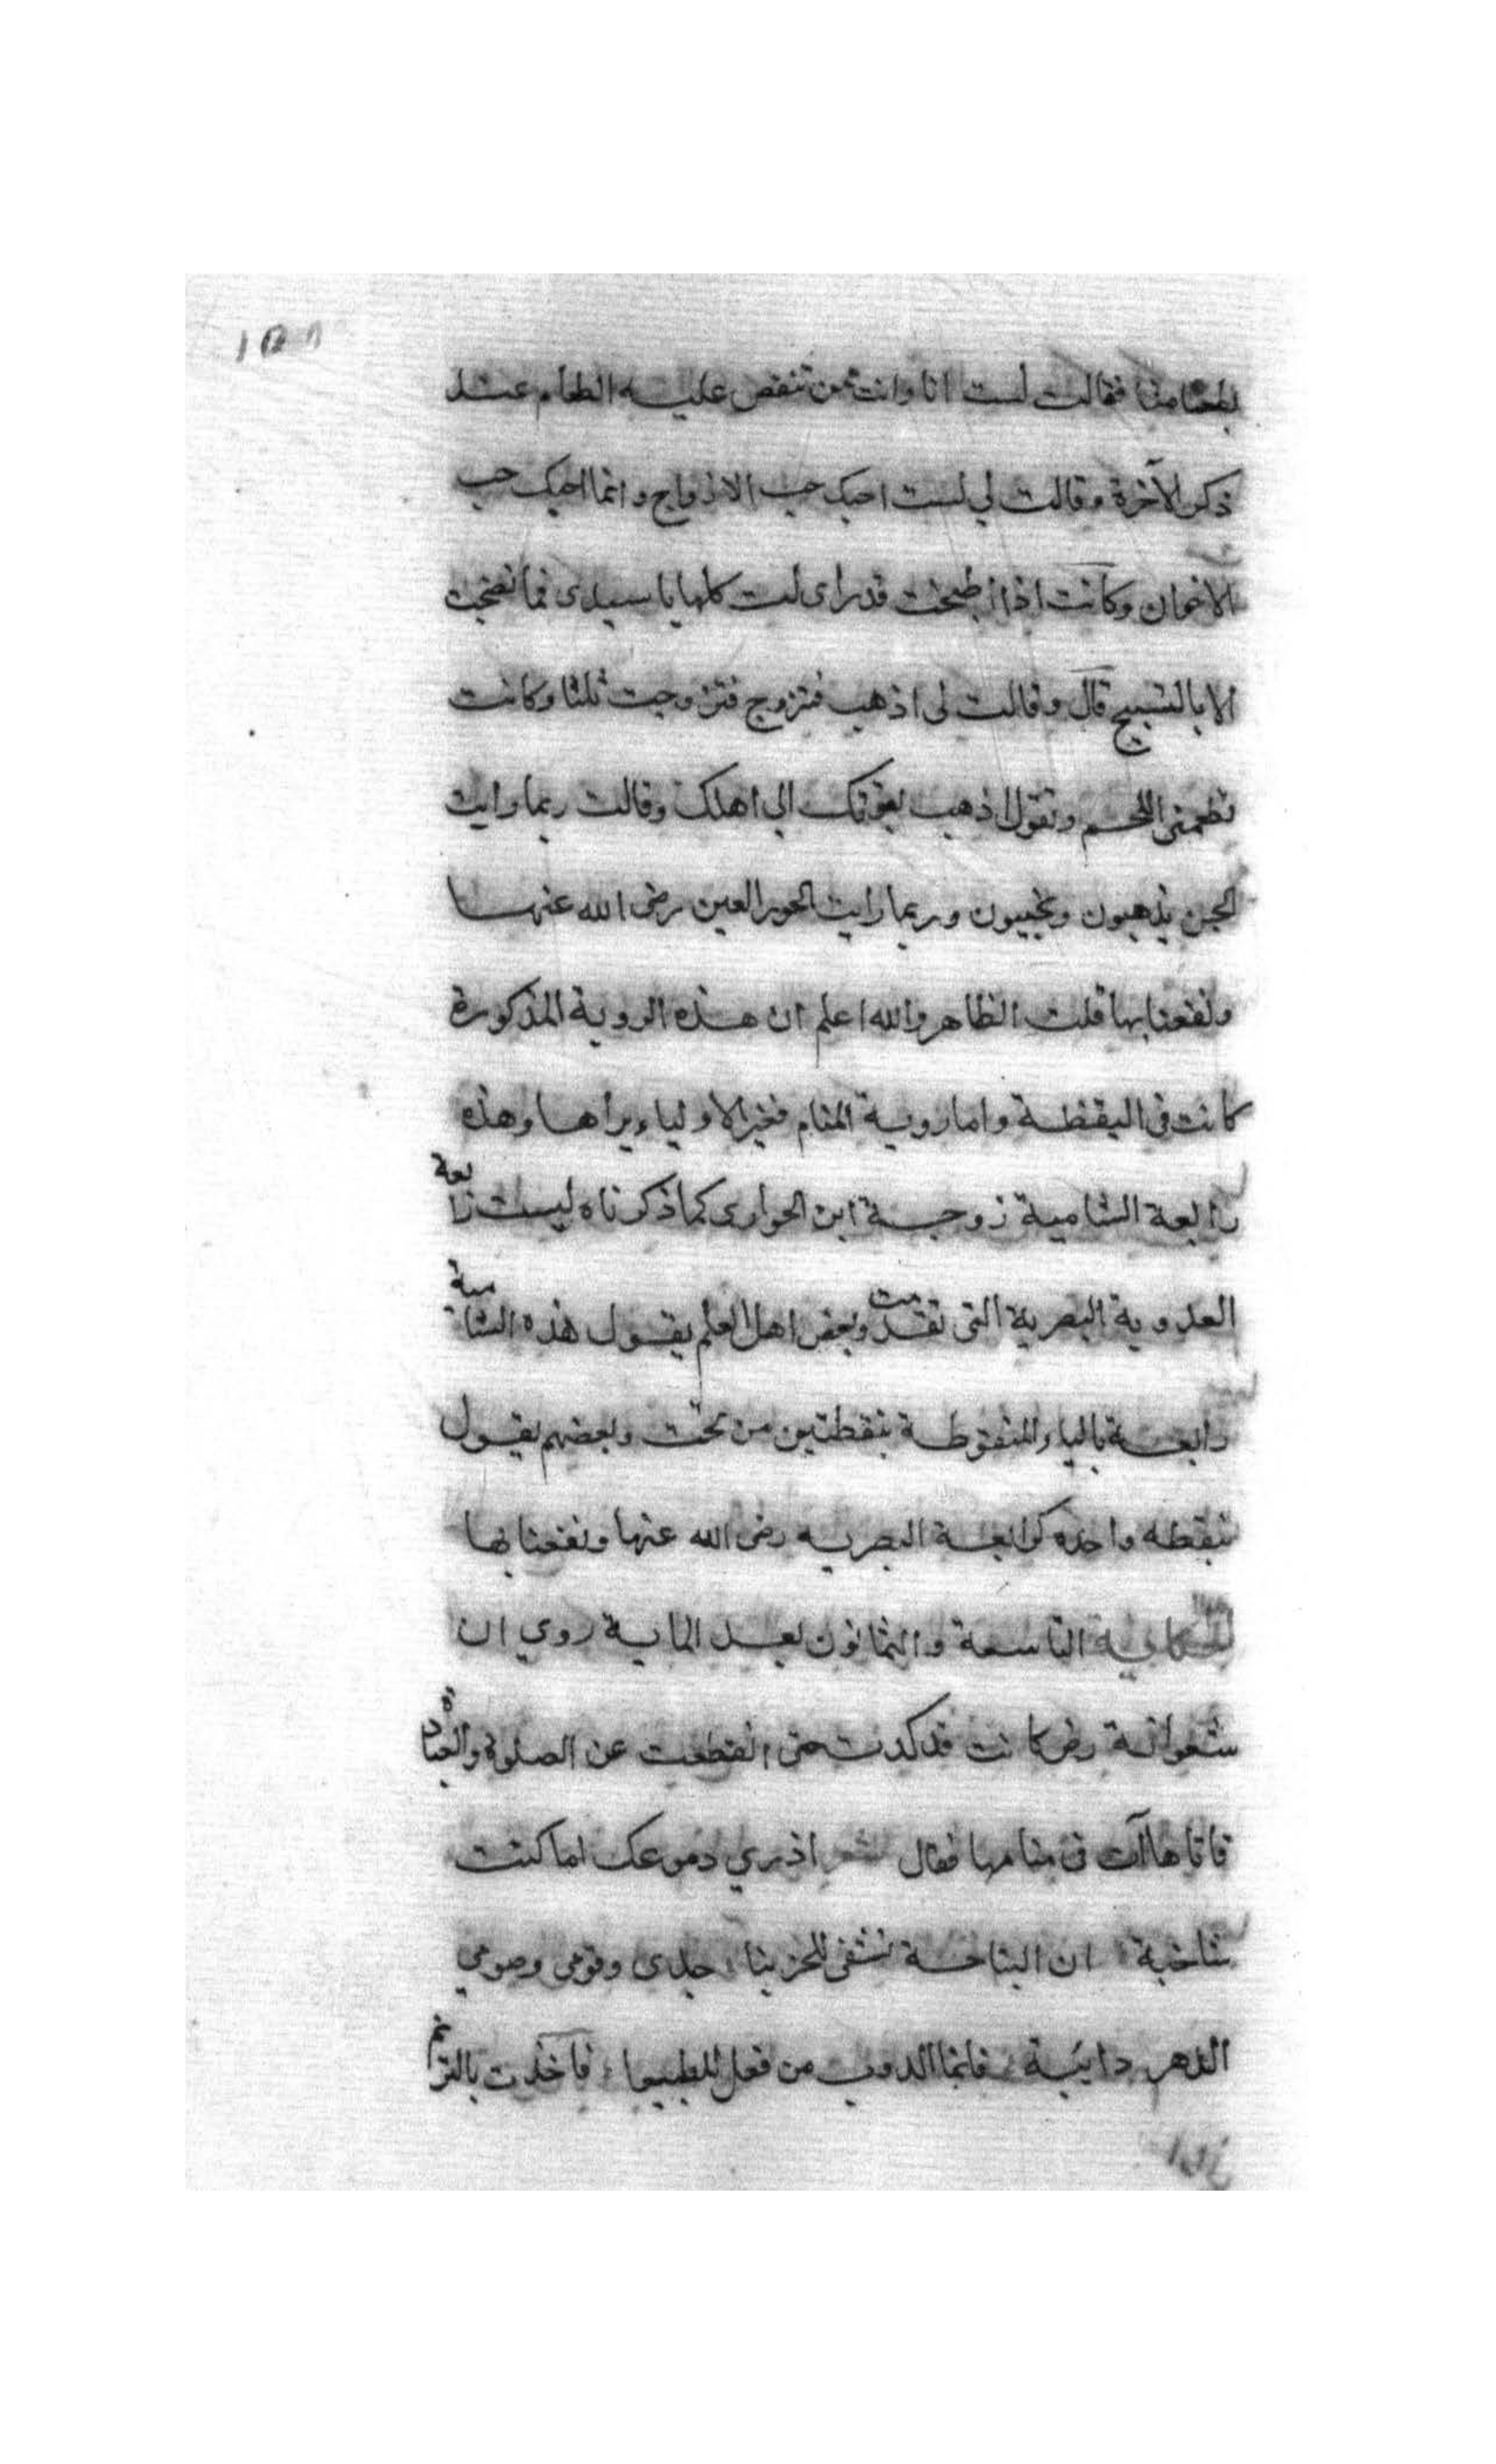 بطعامنا فقالت لست انا وانت ممن تنغص عليه الطعام عند
ذكر الآخرة وقالت لي لست احبك حب الازواج وانما احبك حب
الاخوان وكانت اذا اطبخت قدرا قالت كلها يا سيدى فما نضجت
الا بالتسبيح قال وقالت لى اذهب فتزوج فتزوجت ثلثا وكانت
تطعمنى اللحم وتقول اذهب بقوتك الي اهلك وقالت ربما رايت
الجن يذهبون ويجييون وربما رايت الحور العين رضى الله عنها
ونفعنا بها قلت الظاهر والله اعلم ان هذه الروية المذكورة
كانت فى اليقظة واما روية المنام فغير الاولياء يراها وهذه
رابعة الشامية زوجة ابن الحوارى كما ذكرناه ليست رابعة
العدوية البصرية التى تقدمت وبعض اهل العلم يقول هذه الشامية
رايعة بالياء المنقوطة بنقطتين من تحت وبعضهم يقول
بنقطه واحده كرابعة البصريه رضى الله عنها ونفعنا بها
الحكاية التاسعة والثمانون بعد الماية روي ان
شعوانة رض كانت قد كمدت حتى انقطعت عن الصلوة والعبادة
فاتاها آت فى منامها فقال شعر اذري دموعك اما كنت
شاجية ان النياحة تشفى للحزينا جدى وقومى وصومي
الدهر دايبة فانما الدوب من فعل المطيعا فاخذت بالترنم